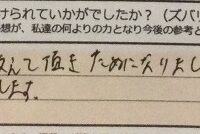 けられていかがでしたか？（ズバリ
想が、私達の何よりの力となり今後の参考と
えて頂きためになりまし
します。